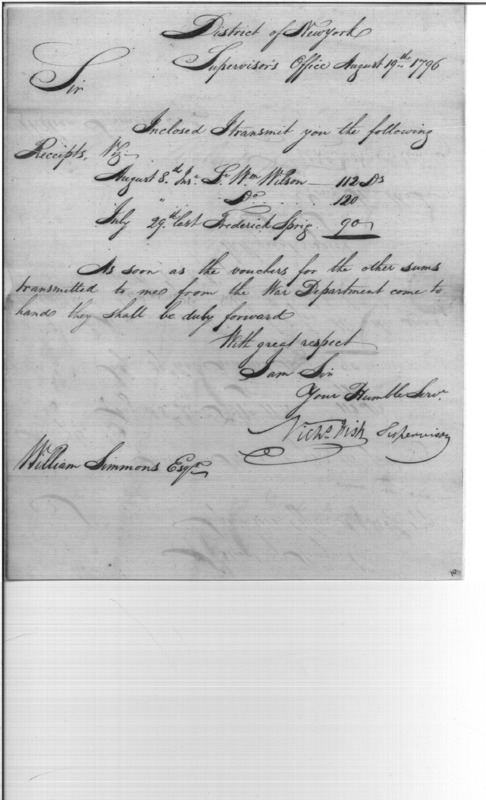 District of Newyork
Supervisor's Office August 19th 1796
Sir
Inclosed I transmit you the following
Receipts, Viz.
August 8.th Ins.t Lt Wm Wilson — 112 Ds
" Do 120
July 29.th last Frederick Sprig 90
As soon as the vouchers for the other sums
transmitted to me from the War Department come to
hand they shall be duly forward
With great respect
I am Sir
Your Humble Serv.t
Nichs Fish Supervisor
William Simmons Esqr